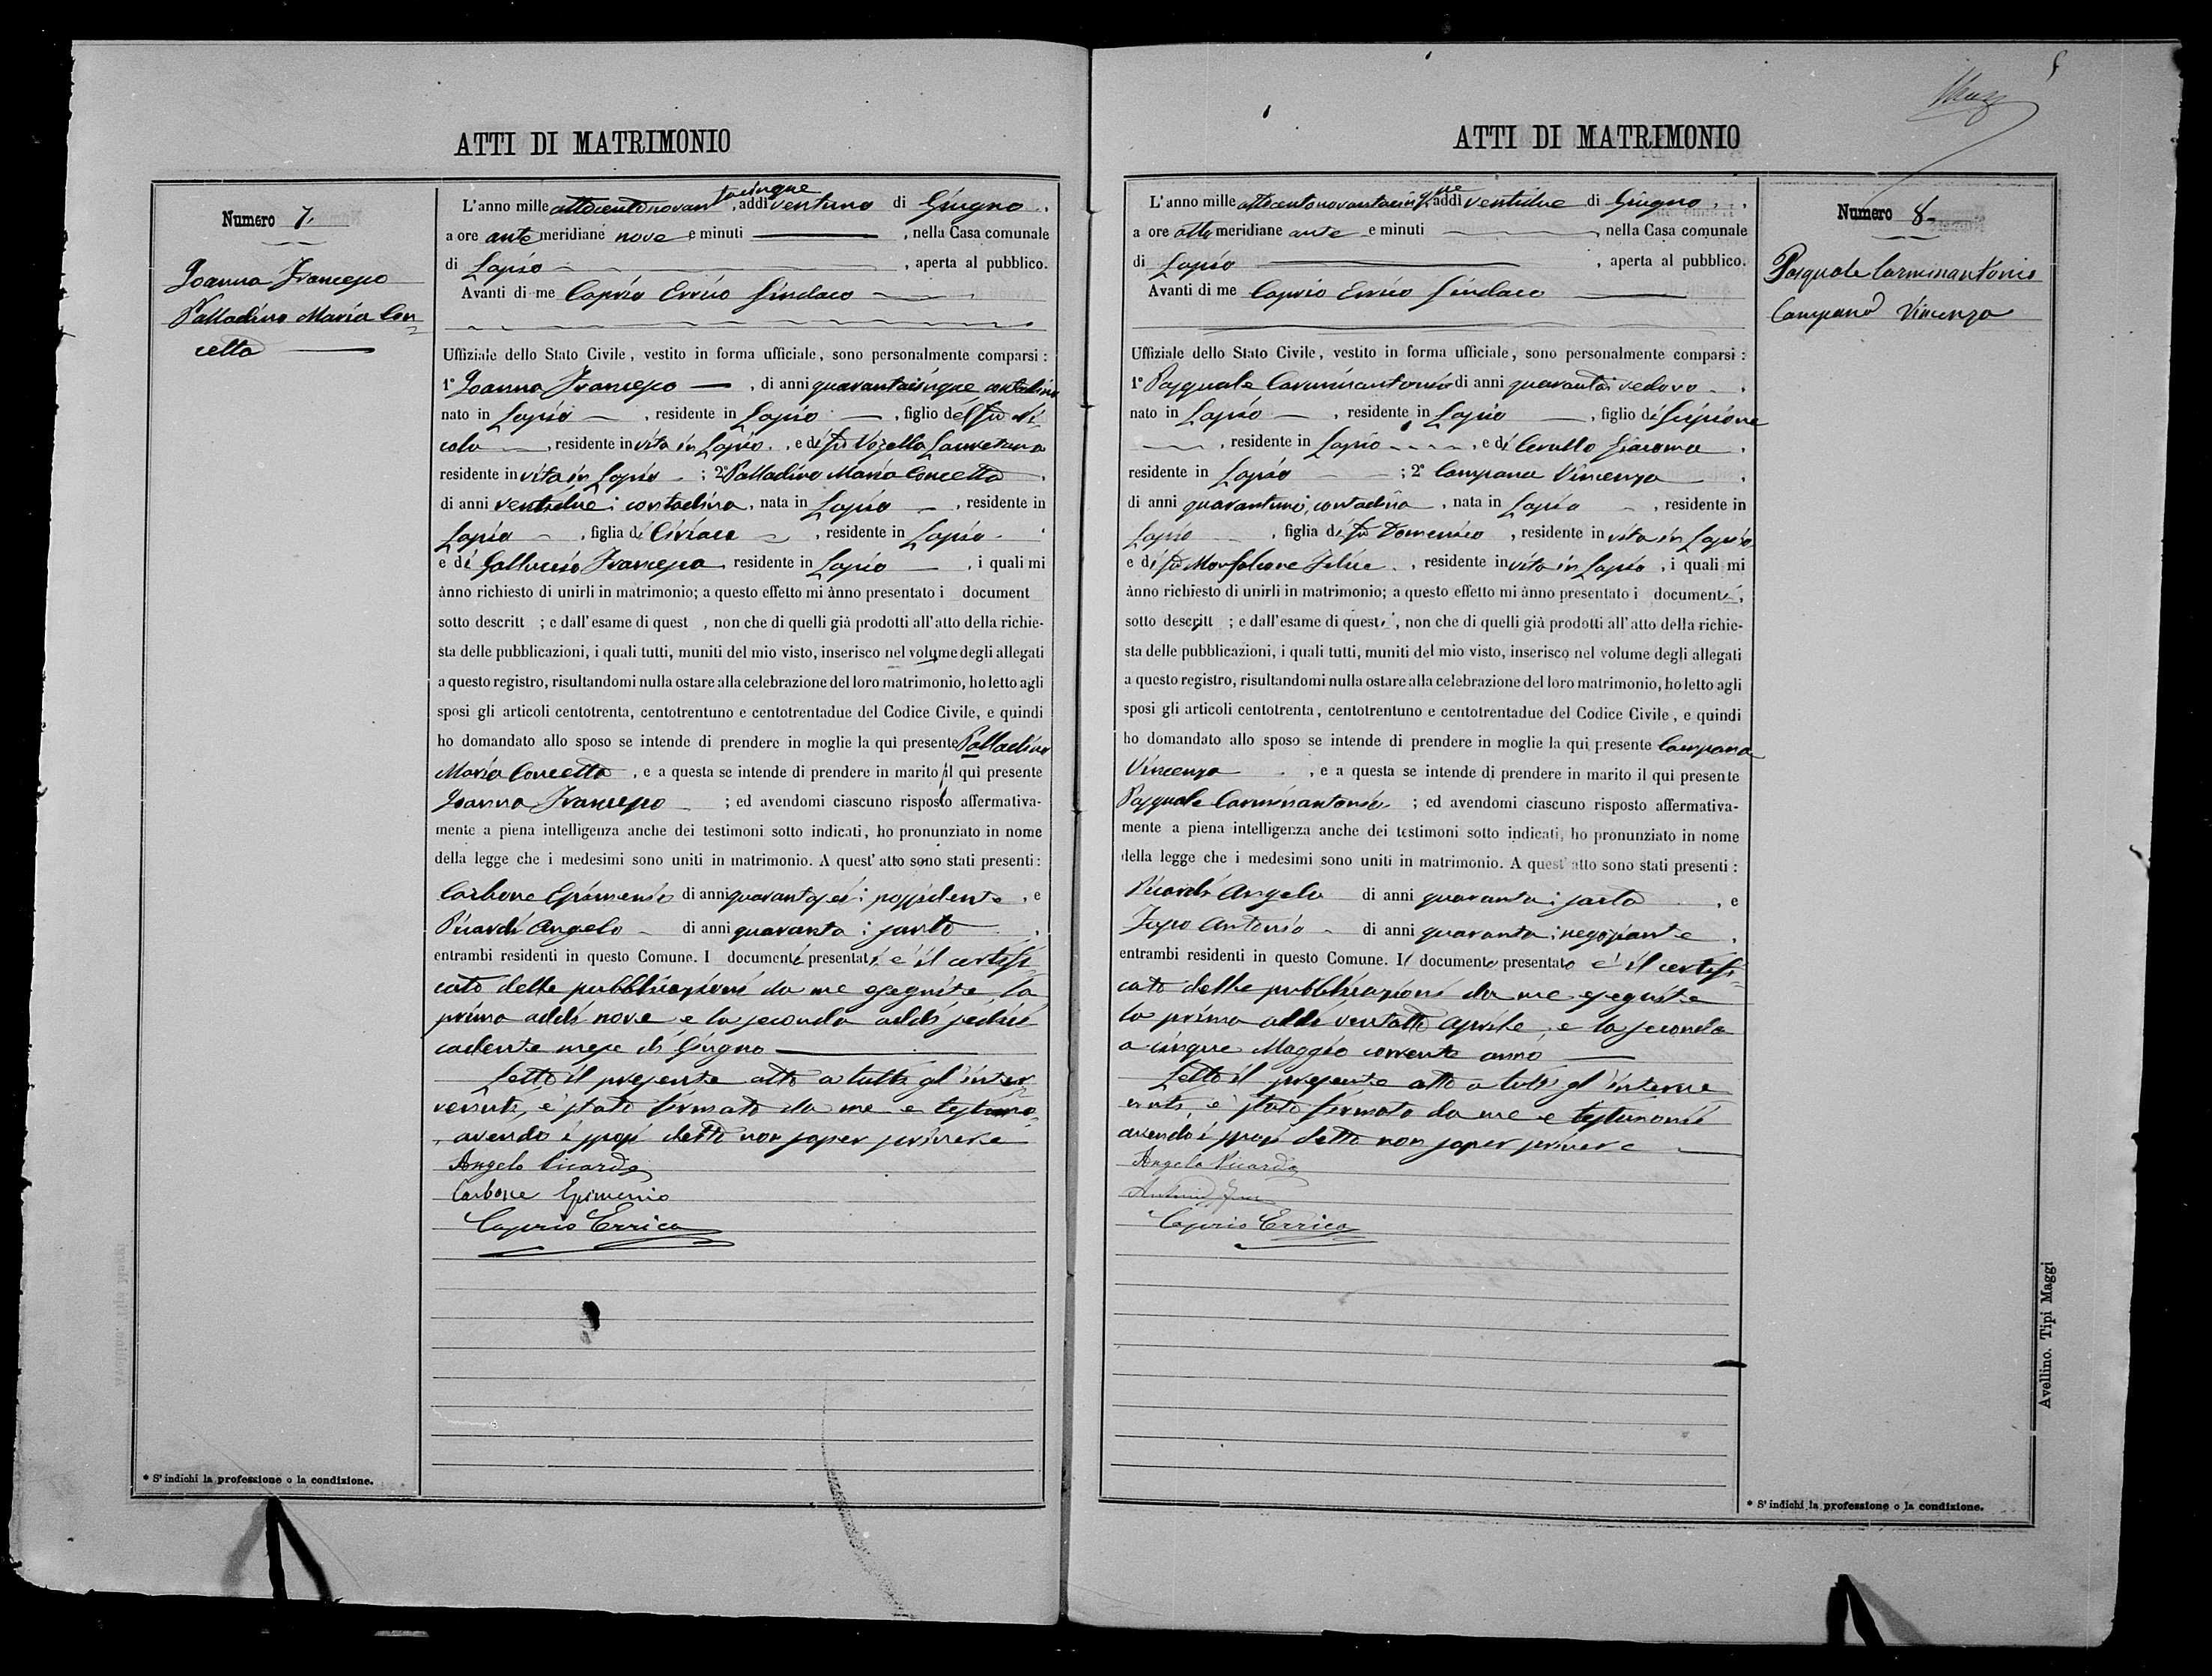 ATTI DI MATRIMONIO
Numero 7.
Joanna Francesco
Palladino Maria Con-
cetta
L'anno mille ottocentonovantacinque, addi ventuno di Giugno,
a ore ante meridiane nove e minuti , nella Casa comunale
di Lapio , aperta al pubblico.
Avanti di me Caprio Errico Sindaco
Uffiziale dello Stato Civile, vestito in forma ufficiale, sono personalmente comparsi:
1° Joanna Francesco , di anni quarantacinque contadino
nato in Lapio , residente in Lapio , figlio del fu Ni
cola , residente in vita in Lapio , e di fu Vozella Lauretana
residente in vita in Lapio ; 2° Palladino Maria Concetta ,
di anni ventidue; contadina, nata in Lapio , residente in
Lapio , figlia di Ciriaco , residente in Lapio
e di Galluccio Francesca, residente in Lapio , i quali mi
ànno richiesto di unirli in matrimonio; a questo effetto mi ànno presentato i document
sotto descritt ; e dall'esame di quest , non che di quelli già prodotti all'atto della richie-
sta delle pubblicazioni, i quali tutti, muniti del mio visto, inserisco nel volume degli allegati
a questo registro, risultandomi nulla ostare alla celebrazione del loro matrimonio, ho letto agli
sposi gli articoli centotrenta, centotrentuno e centotrentadue del Codice Civile, e quindi
ho domandato allo sposo se intende di prendere in moglie la qui presente Palladino
Maria Concetta , e a questa se intende di prendere in marito il qui presente
Joanna Francesco ; ed avendomi ciascuno risposto affermativa-
mente a piena intelligenza anche dei testimoni sotto indicati, ho pronunziato in nome
della legge che i medesimi sono uniti in matrimonio. A quest'atto sono stati presenti:
Carbone Epimenio di anni quarantasei; possidente , e
Picardi Angelo di anni quaranta; sarto ,
entrambi residenti in questo Comune. I documenti presentati è il certifi
cato delle pubblicazioni da me eseguite, la
prima addi nove e la seconda addi sedici
cadente mese di Giugno
Letto il presente atto a tutti gl'inter
venuti, è stato firmato da me e testimo-
avendo i sposi detto non saper scrivere
Angelo Picardi
Carbone Epimenio
Caprio Errico
* S'indichi la professione o la condizione.
ATTI DI MATRIMONIO
Numero 8.
Pasquale Carminantonio
Campana Vincenza
L'anno mille ottocentonovantacinque, addi ventidue di Giugno,
a ore otto meridiane ante e minuti , nella Casa comunale
di Lapio , aperta al pubblico.
Avanti di me Caprio Errico Sindaco
Uffiziale dello Stato Civile, vestito in forma ufficiale, sono personalmente comparsi:
1° Pasquale Carminantonio di anni quaranta; vedovo ,
nato in Lapio , residente in Lapio , figlio di Scipione
, residente in Lapio , e di Cerullo Giacoma ,
residente in Lapio ; 2° Campana Vincenza ,
di anni quarantuno; contadina , nata in Lapio , residente in
Lapio , figlia di fu Domenico , residente in vita in Lapio
e di fu Monfalcone Felice , residente in vita in Lapio , i quali mi
ànno richiesto di unirli in matrimonio; a questo effetto mi ànno presentato i documenti,
sotto descritt ; e dall'esame di questi, non che di quelli già prodotti all'atto della richie-
sta delle pubblicazioni, i quali tutti, muniti del mio visto, inserisco nel volume degli allegati
a questo registro, risultandomi nulla ostare alla celebrazione del loro matrimonio, ho letto agli
sposi gli articoli centotrenta, centotrentuno e centotrentadue del Codice Civile, e quindi
ho domandato allo sposo se intende di prendere in moglie la qui presente Campana
Vincenza , e a questa se intende di prendere in marito il qui presente
Pasquale Carminantonio ; ed avendomi ciascuno risposto affermativa-
mente a piena intelligenza anche dei testimoni sotto indicati, ho pronunziato in nome
della legge che i medesimi sono uniti in matrimonio. A quest'atto sono stati presenti:
Picardi Angelo di anni quaranta; sarto , e
Antonio di anni quaranta; negoziante ,
entrambi residenti in questo Comune. Il documento presentato è il certifi-
cato delle pubblicazioni da me eseguite
la prima addi ventotto Aprile, e la seconda
a cinque Maggio corrente anno
Letto il presente atto a tutti gl'interve
nuti, è stato firmato da me e testimonii
avendo i sposi detto non saper scrivere
Angelo Picardi
Antonio
Caprio Errico
* S'indichi la professione o la condizione.
Avellino. Tipi Maggi